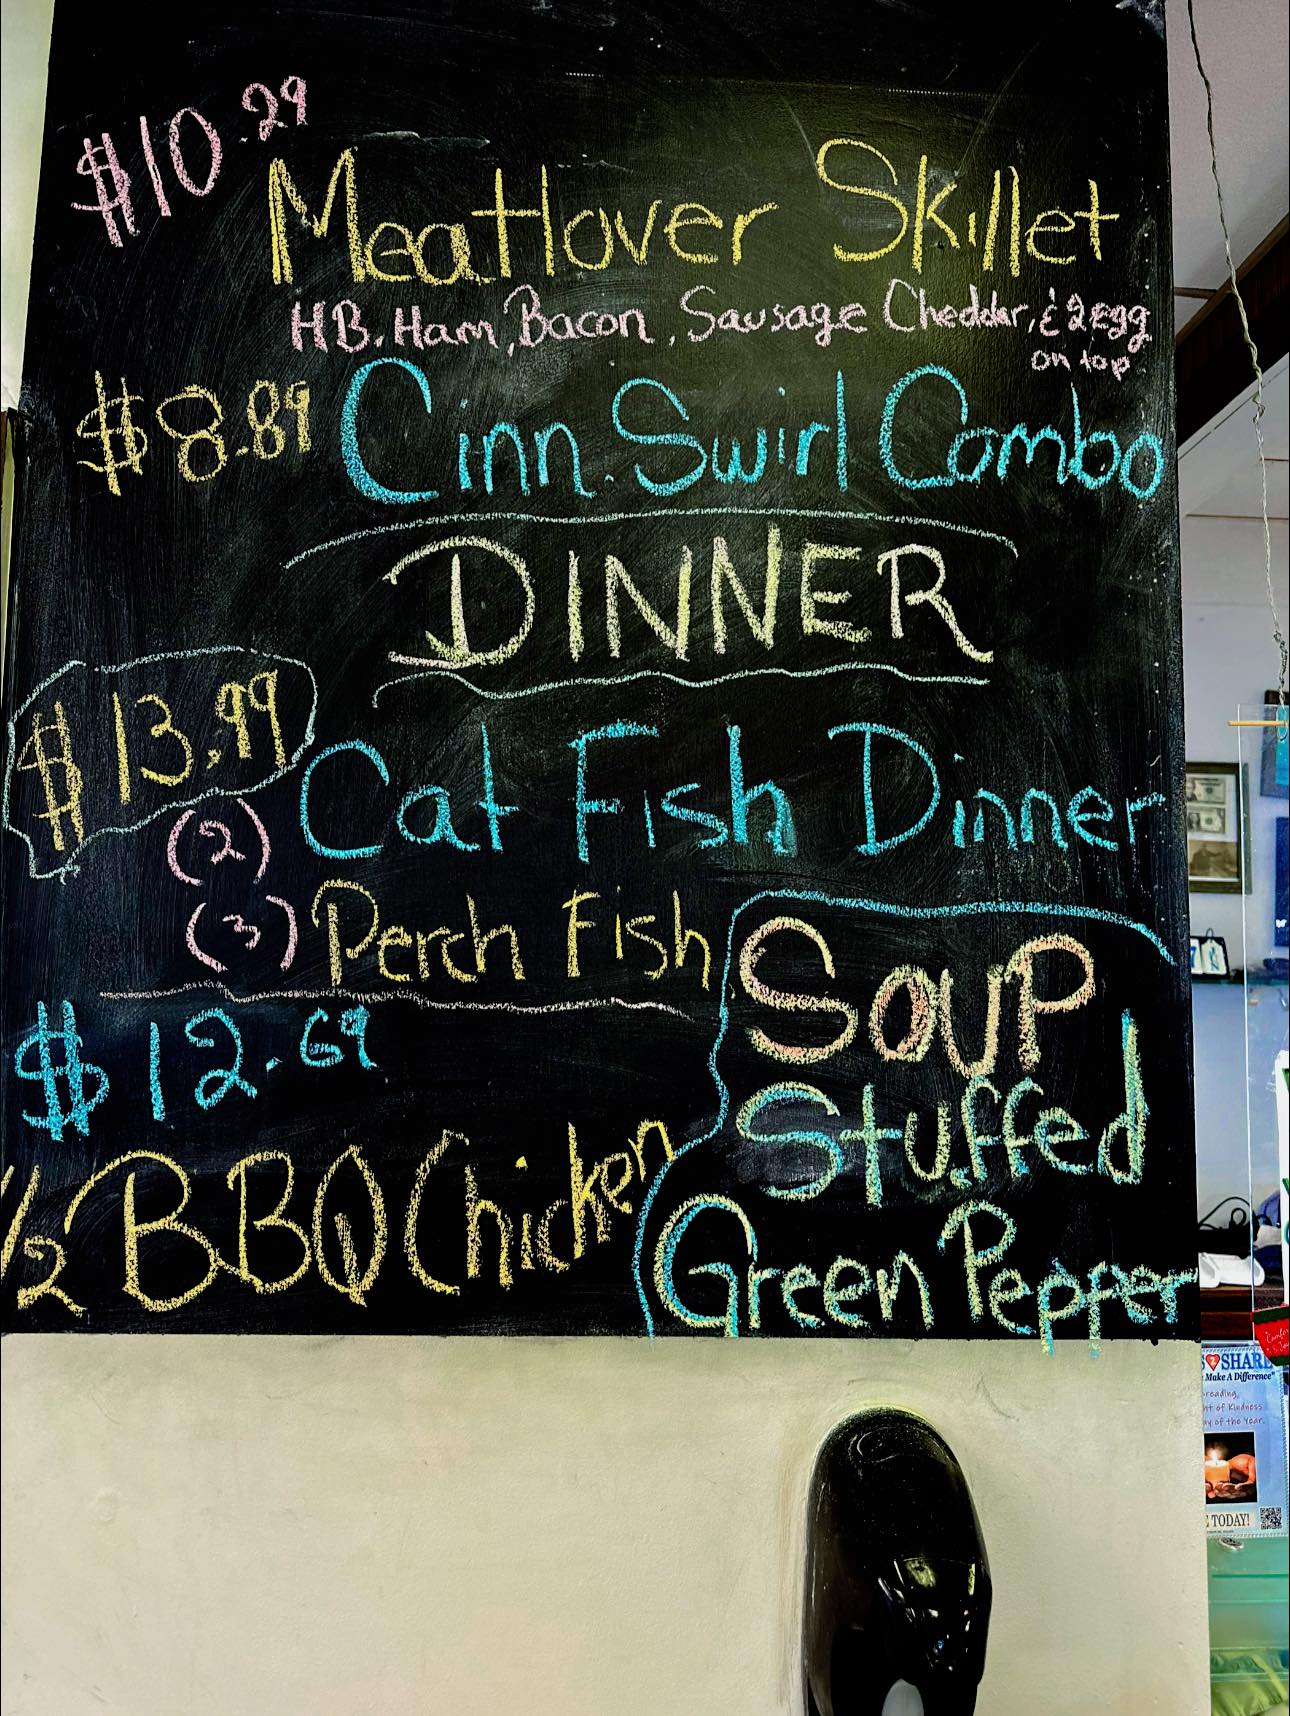 $10.29
Meatlover Skillet
HB, Ham, Bacon, Sausage Cheddar, & 2 Egg
on top
$8.89 Cinn. Swirl Combo
DINNER
$13.99
(2) Cat Fish Dinner
(3) Perch Fish
$12.69
1/2 BBQ Chicken
Soup
Stuffed
Green Pepper
SHARE
Make A Difference"
of Kindness
of the Year.
TODAY!